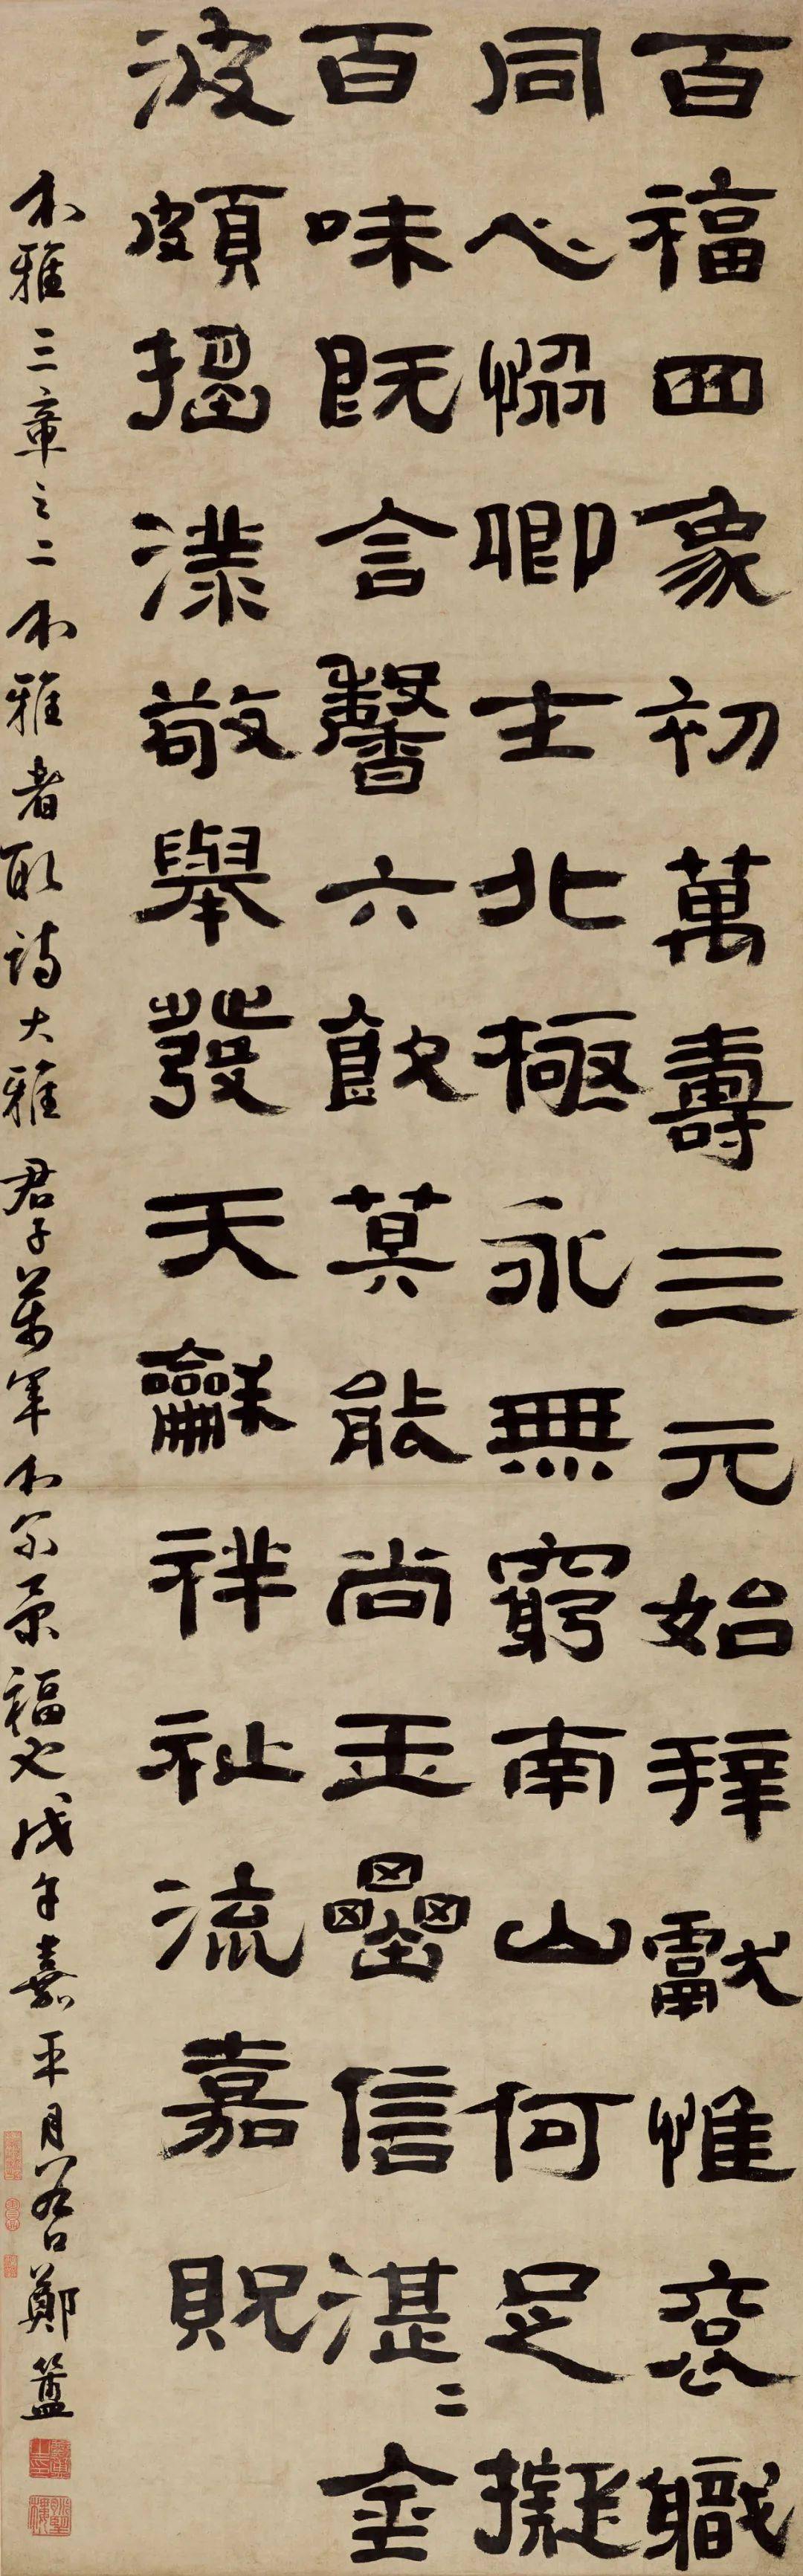 百福四象初萬壽三元始拜獻惟袞職
同心恊卿士北極永無窮南山何足擬
百味既含馨六飲莫能尚玉罍信湛二金
波頗搖漾敬舉發天龢祥祉流嘉貺
介雅三章之二介雅者取詩大雅君子萬年介爾景福也戊午嘉平月谷口鄭簠